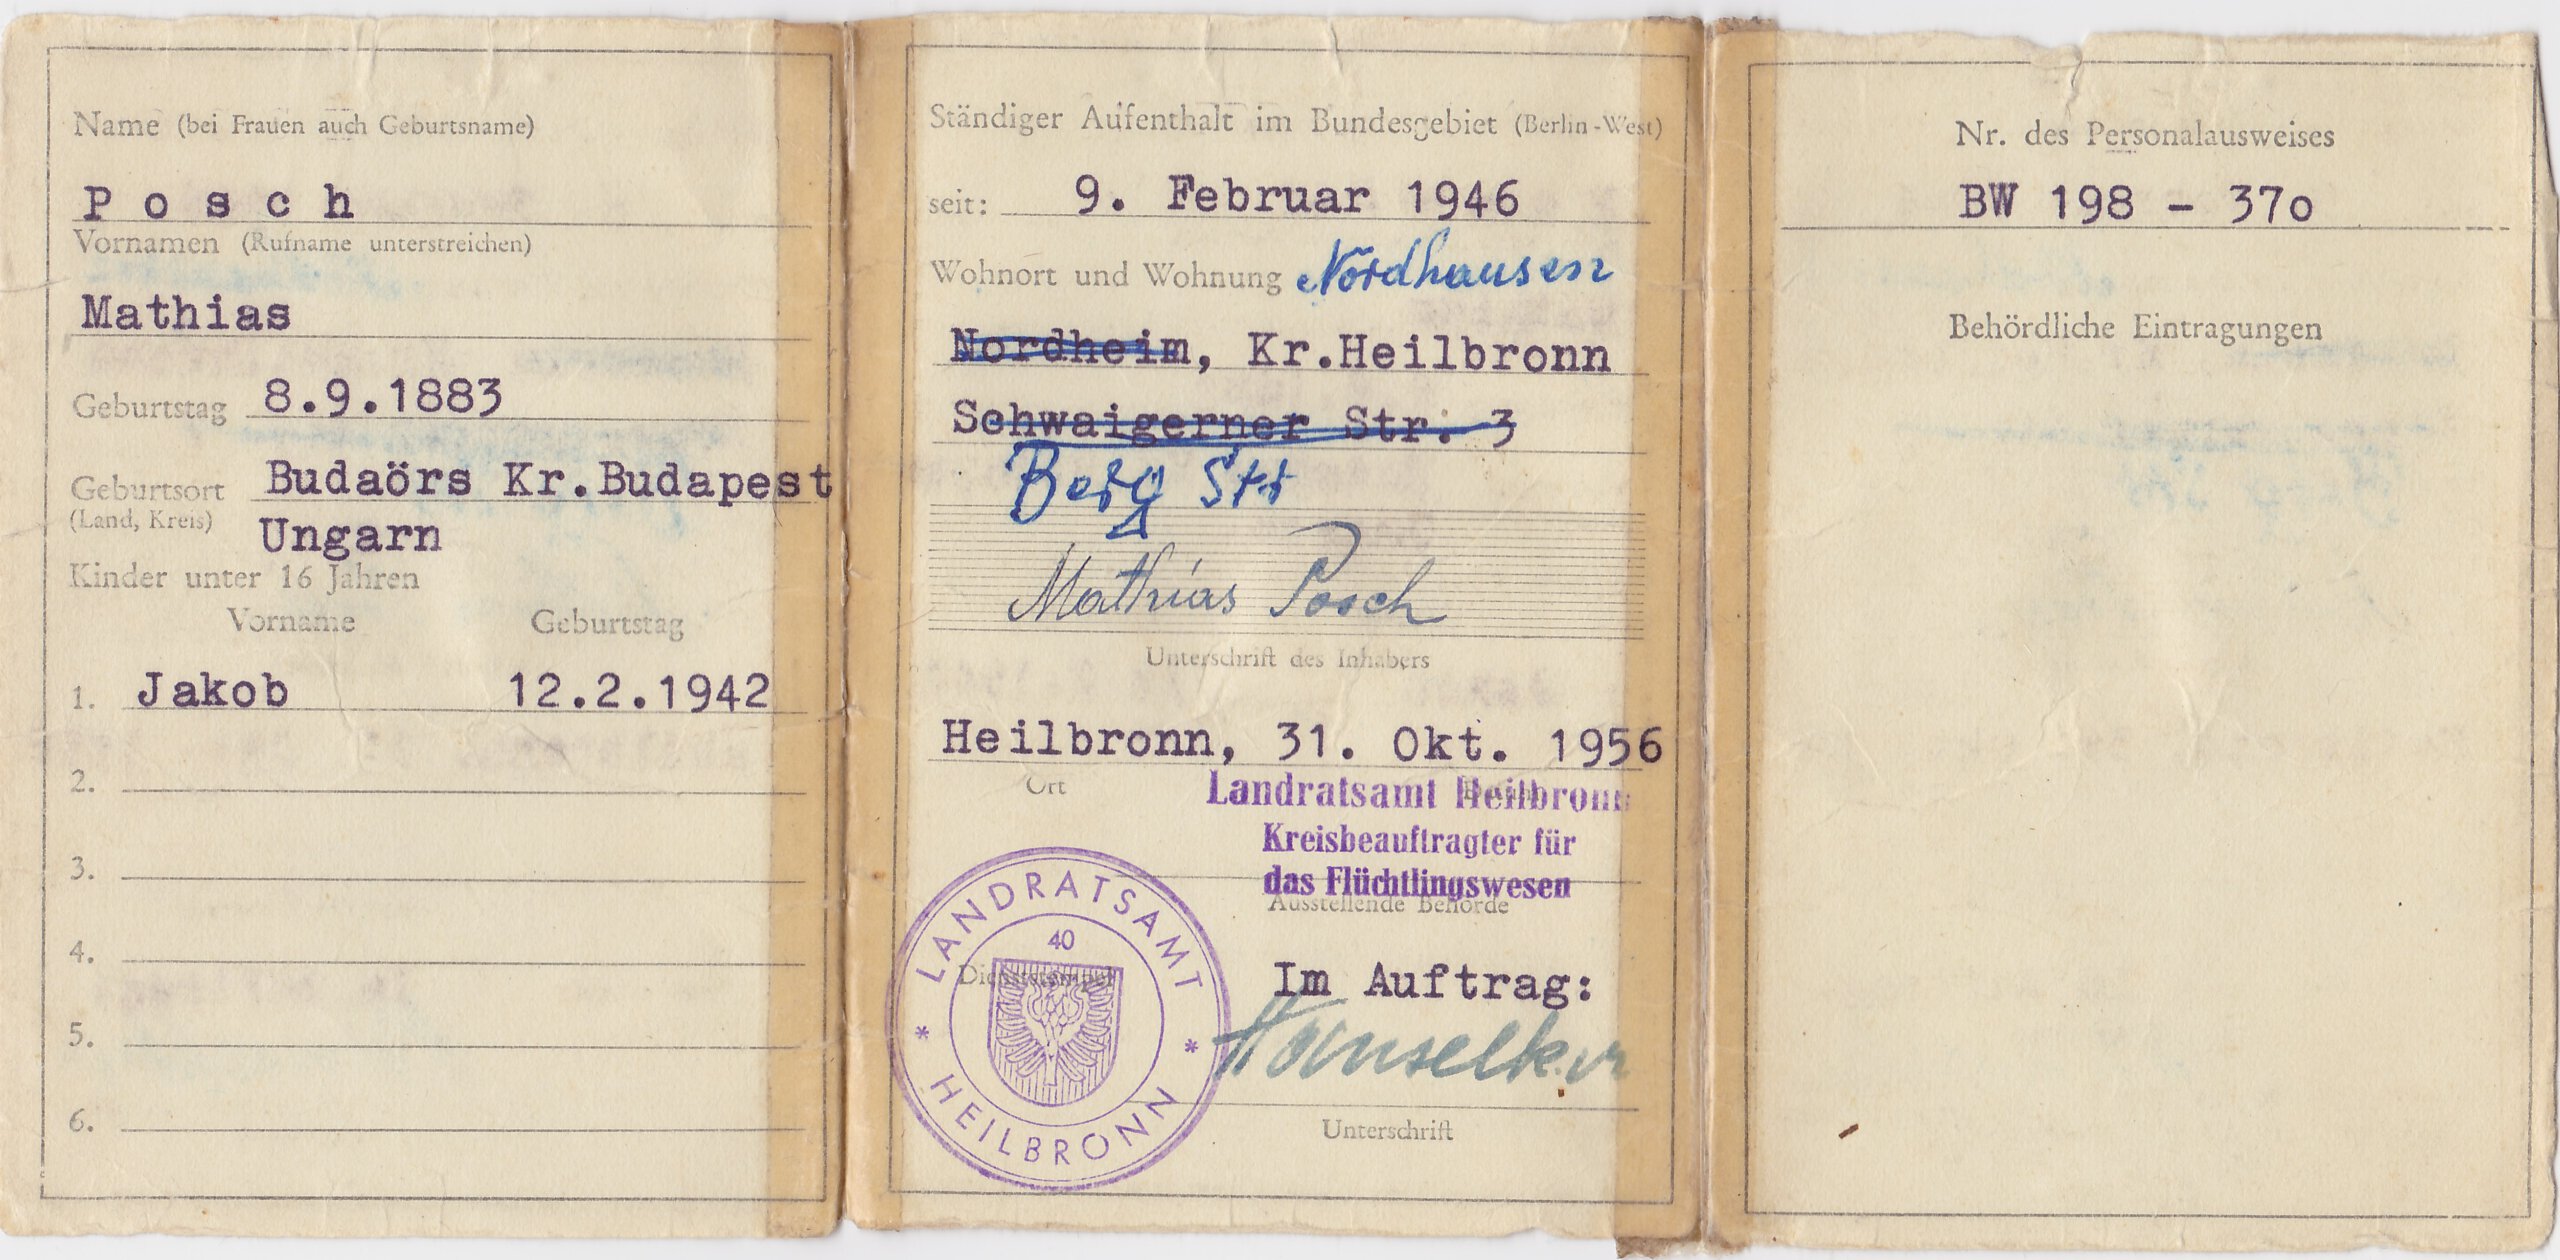 Name (bei Frauen auch Geburtsname)
Posch
Vornamen (Rufname unterstreichen)
Mathias
Geburtstag 8.9.1883
Geburtsort Budaörs Kr.Budapest
(Land, Kreis) Ungarn
Kinder unter 16 Jahren
Vorname Geburtstag
1. Jakob 12.2.1942
2.
3.
4.
5.
6.
Ständiger Aufenthalt im Bundesgebiet (Berlin-West)
seit: 9. Februar 1946
Wohnort und Wohnung Nordhausen
Nordheim, Kr.Heilbronn
Schwaigerner Str. 3
Berg Str
Mathias Posch
Unterschrift des Inhabers
Heilbronn, 31. Okt. 1956
Ort
Landratsamt Heilbronn
Kreisbeauftragter für
das Flüchtlingswesen
Ausstellende Behörde
LANDRATSAMT
40
Dienststempel
* *
HEILBRONN
Im Auftrag:
Unterschrift
Nr. des Personalausweises
BW 198 - 37o
Behördliche Eintragungen